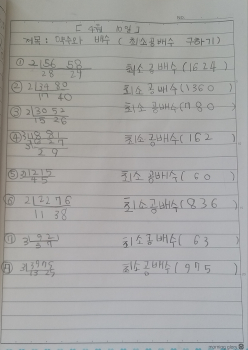 제목: 약수와 배수 ( 최소공배수 구하기 )
① 2)56 58 최소 공배수(1624)
28 29
② 2) 80 최소 공배수(1360)
40
③ 2)30 52 최소 공배수(780)
15 26
최소 공배수(162)
2 9
⑤ 3)12 15 최소 공배수( 60 )
4 5
⑥ 2)22 76 최소 공배수(836)
11 38
⑦ 3)9 21 최소공배수( 63 )
3 7
⑧ 3)39 75 최소공배수( 975 )
13 25